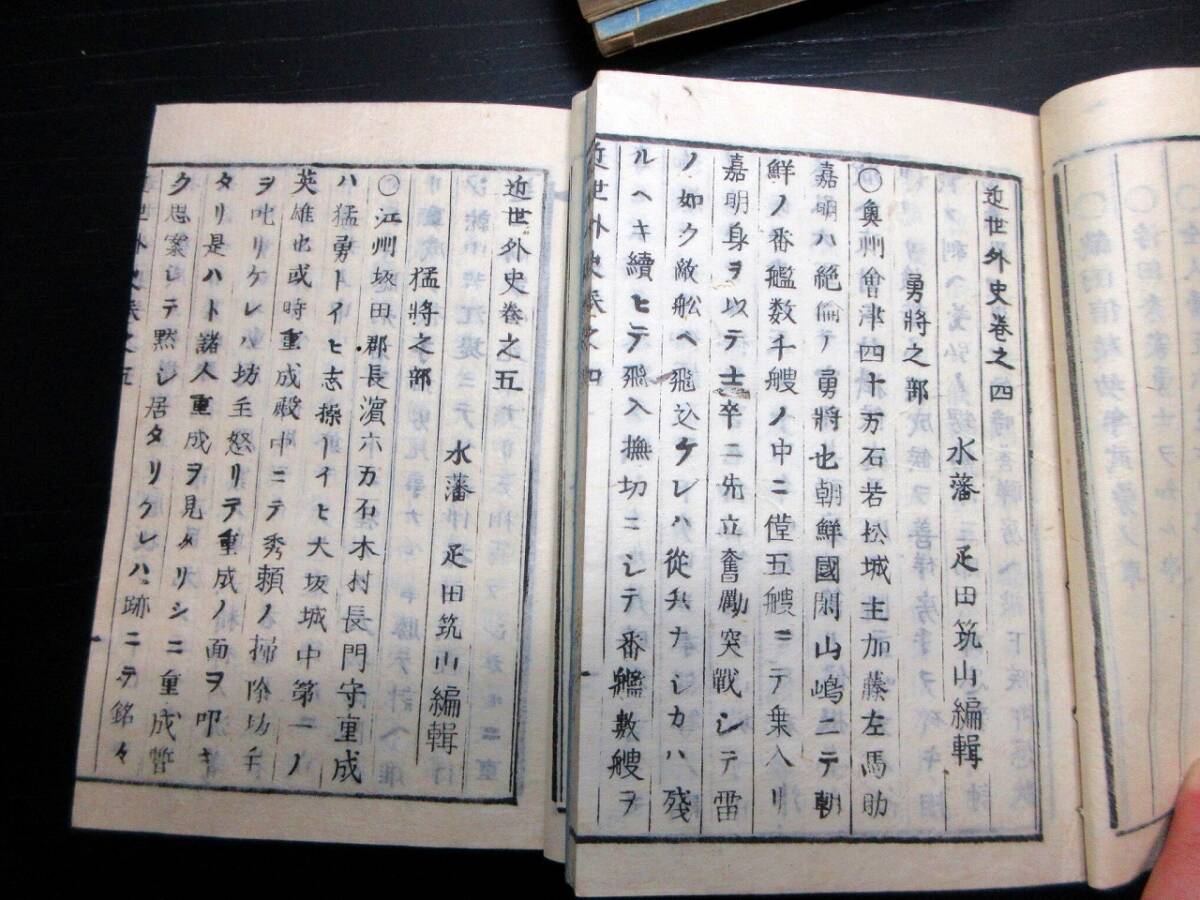 近世外史巻之四
水藩 疋田筑山編輯
勇將之部
〇奥州會津四十万石若松城主加藤左馬助
嘉明ハ絶倫ノ勇將也朝鮮國閑山嶋ニテ朝
鮮ノ番艦数千艘ノ中ニ僅五艘ニテ乗入リ
嘉明身ヲ以テ士卒ニ先立奮勵突戰シテ雷
ノ如ク敵舩ヘ飛込ケレハ從兵ナシカハ殘
ルヘキ續ヒテ飛入撫切ニシテ番艦数艘ヲ
近世外史巻之四
近世外史巻之五
水藩 疋田筑山編輯
猛將之部
〇江州坂田郡長濵六万石木村長門守重成
ハ猛勇トイヒ志操トイヒ大坂城中第一ノ
英雄也或時重成殿中ニテ秀頼ノ掃除坊主
ヲ叱リケレハ坊主怒リテ重成ノ面ヲ叩キ
タリ是ハト諸人重成ヲ見タリシニ重成暫
ク思案シテ黙シ居タリケレハ跡ニテ銘々
世外史巻之五